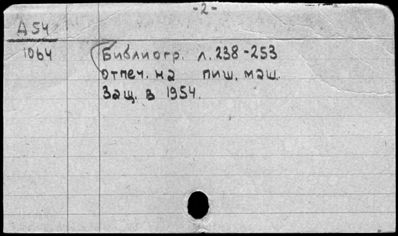 -2-
А54
1064
Библиогр. л. 238-253
отпеч. на пиш. маш.
Защ. в 1954.